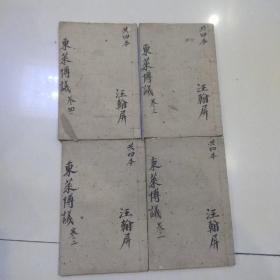 共四本
東萊博議 卷四
汪翰屏
共四本
東萊博議 卷三
汪翰屏
共四本
東萊博議 卷二
汪翰屏
共四本
東萊博議 卷一
汪翰屏